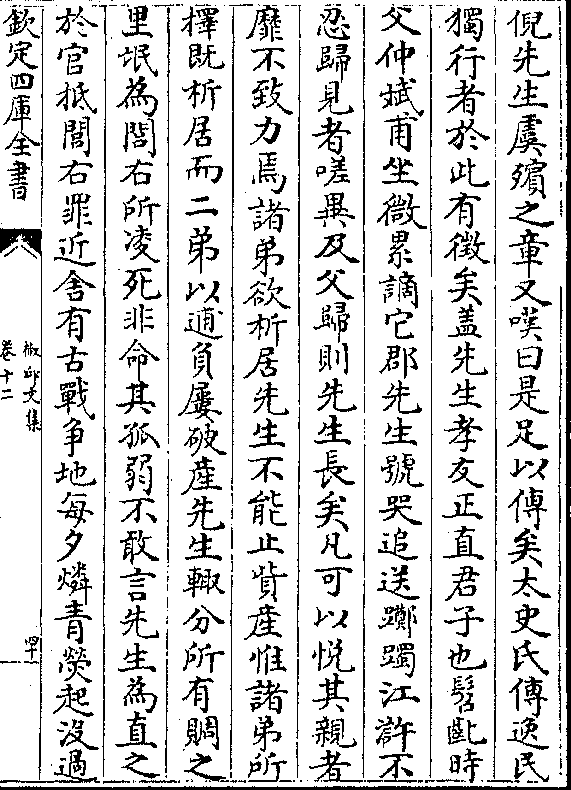 倪先生虞殯之章又嘆曰是足以傳矣太史氏傳逸民
獨行者於此有徵矣蓋先生孝友正直君子也髫齔時
父仲斌甫坐微累謫它郡先生號哭追送躑躅江滸不
忍歸見者嗟異及父歸則先生長矣凡可以悦其親者
靡不致力焉諸弟欲析居先生不能止貲産惟諸弟所
擇既析居而二弟以逋負屢破産先生輙分所有賙之
里氓為閭右所凌死非命其孤弱不敢言先生為直之
於官抵閭右罪近舍有古戰爭地每夕燐青熒起没過
欽定四庫全書
椒邱文集
卷十二